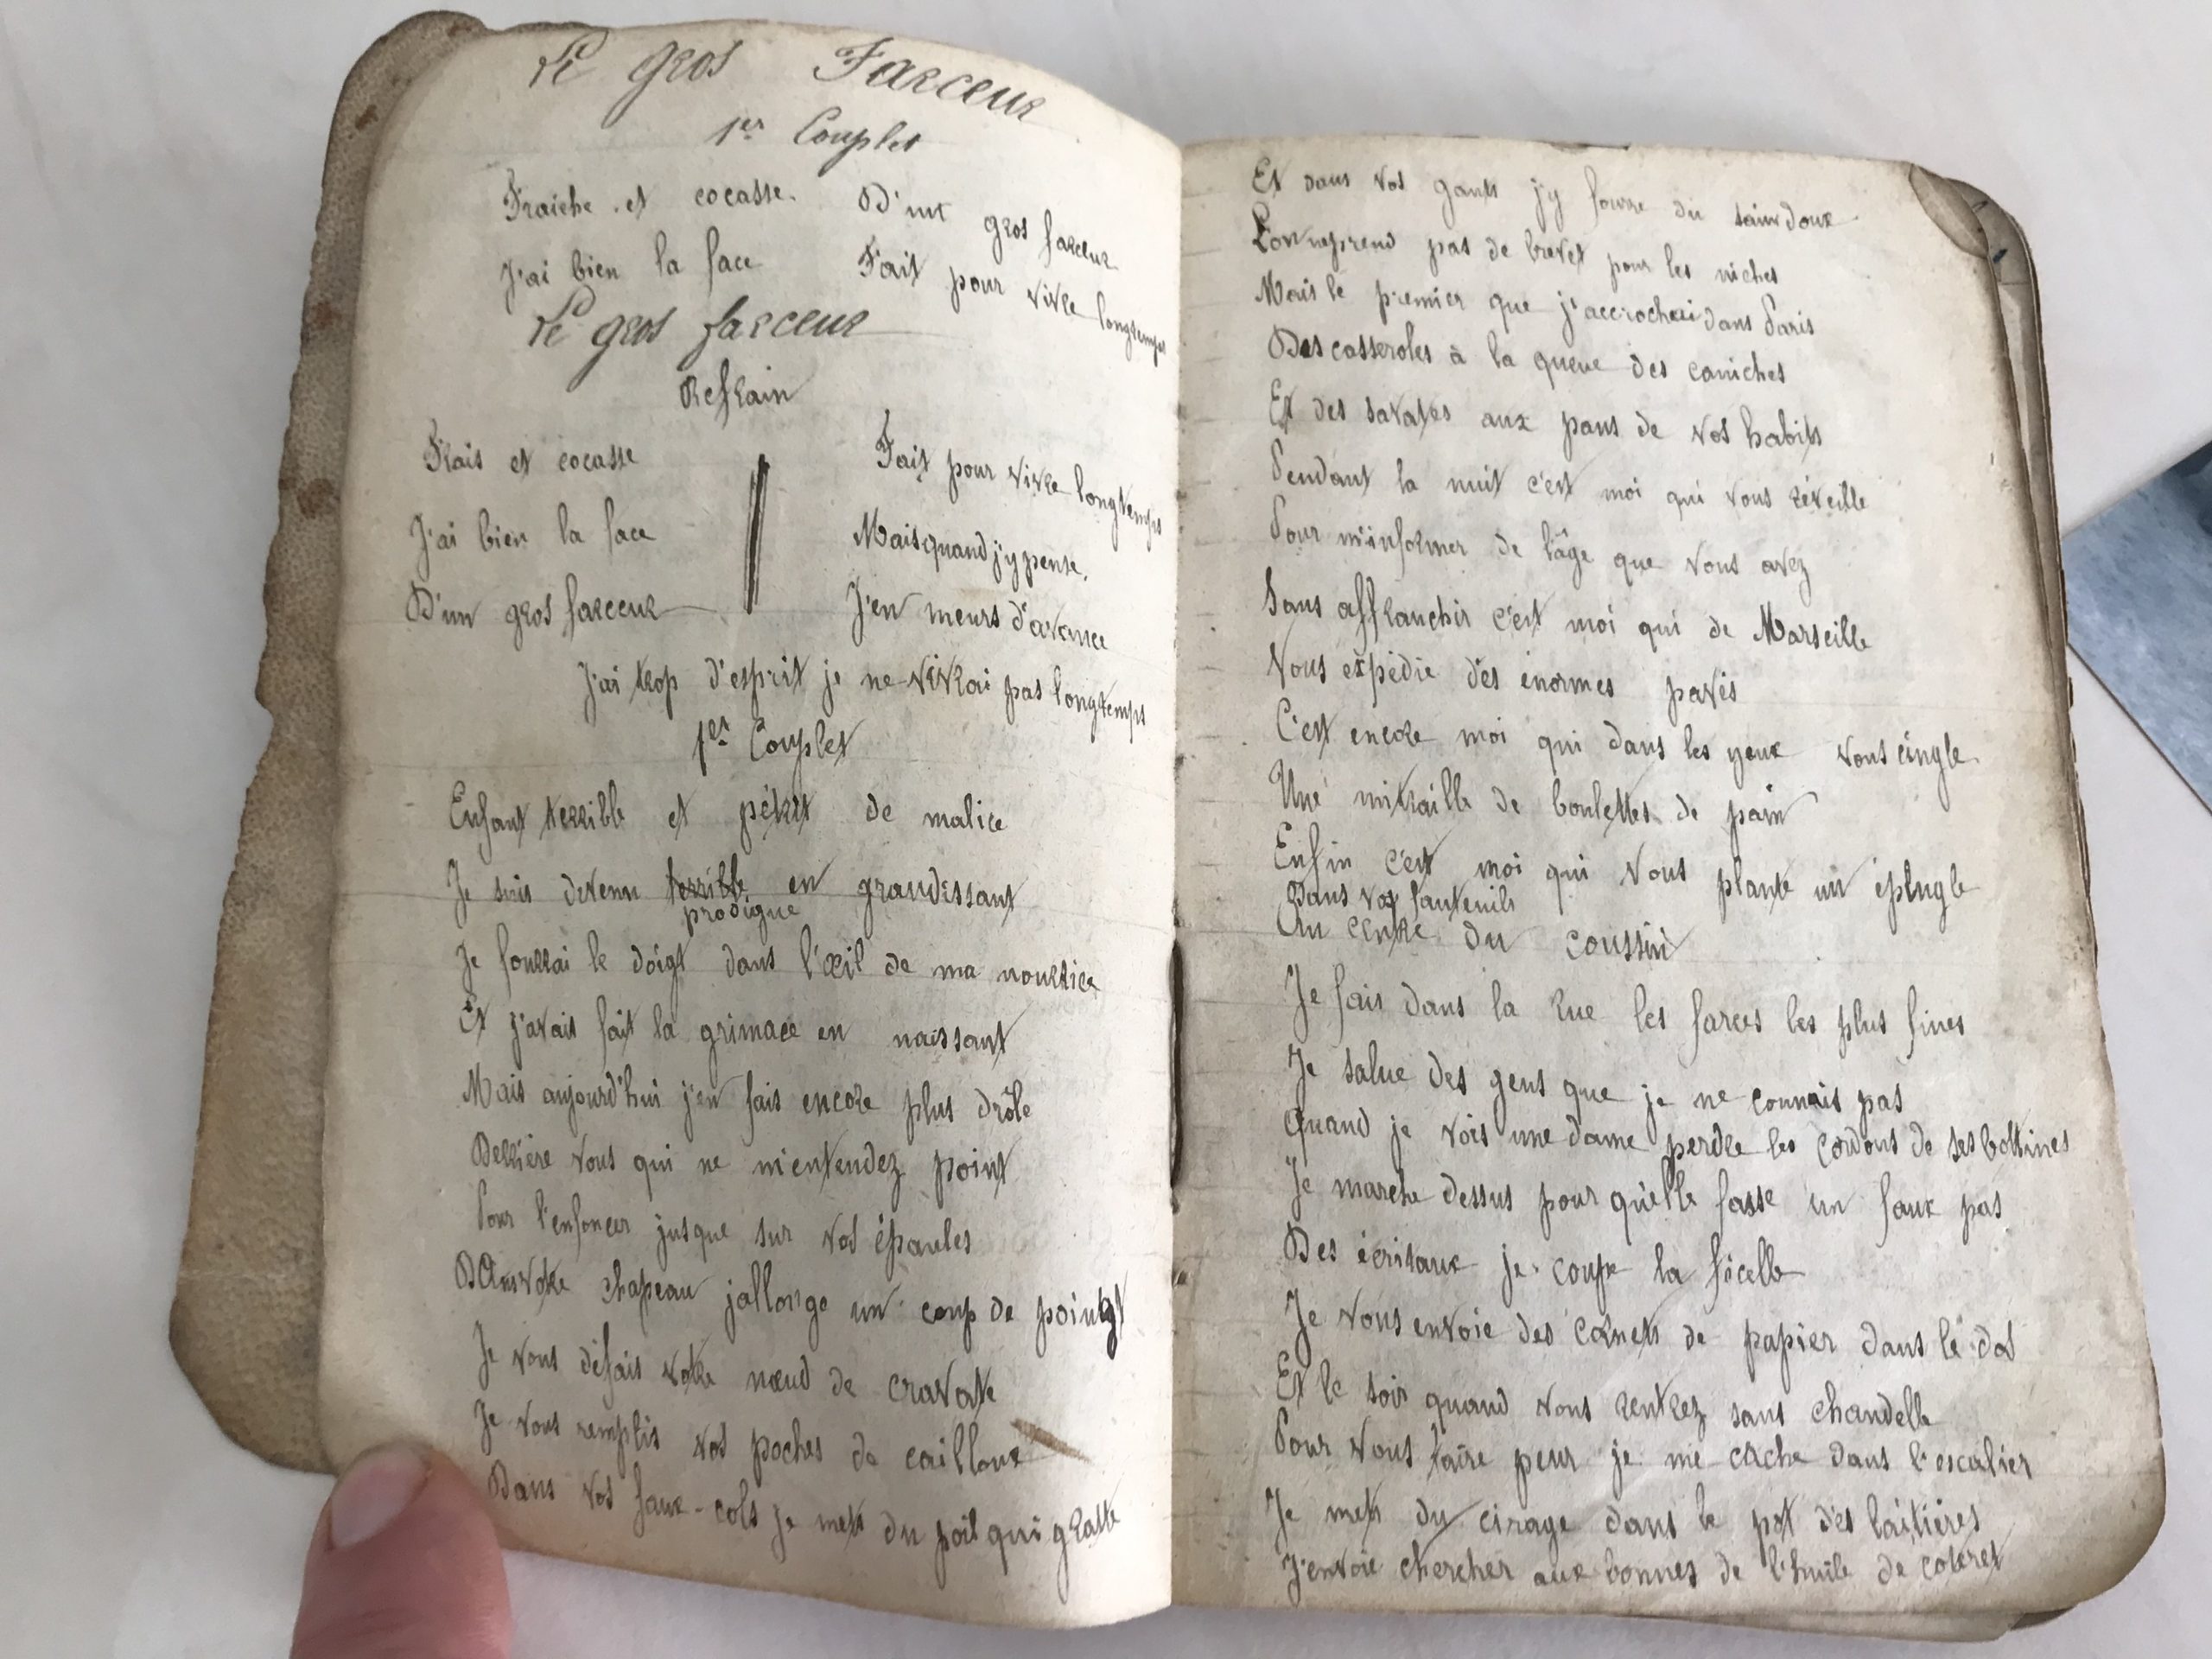 Le gros Farceur
1er Couplet
Fraiche et cocasse. D'un gros farceur
J'ai bien la face Fait pour vivre longtemps
Le gros farceur
Refrain
Frais et cocasse
J'ai bien la face
D'un gros farceur
Fait pour vivre longtemps
Mais quand j'y pense,
J'en meurs d'avance
J'ai trop d'esprit je ne vivrai pas longtemps
1er Couplet
Enfant terrible et pétrit de malice
Je suis devenu terrible en grandissant
prodigue
Je fourrai le doigt dans l'œil de ma nourrice
Et j'avais fait la grimace en naissant
Mais aujourd'hui j'en fais encore plus drôle
Derrière vous qui ne m'entendez point
Pour l'enfoncer jusque sur vos épaules
Dans votre chapeau j'allonge un coup de poingt
Je vous défais votre nœud de cravate
Je vous remplis vos poches de cailloux
Dans vos faux-cols je mets du poil qui gratte
Et dans vos gants j'y fourre du saindoux
L'on neprend pas de brevet pour les niches
Mais le premier que j'accrochai dans Paris
Des casseroles à la queue des caniches
Et des savates aux pans de vos habits
Pendant la nuit c'est moi qui vous réveille
Pour m'informer de l'âge que vous avez
Sans affranchir c'est moi qui de Marseille
Vous expédie des énormes pavés
C'est encore moi qui dans les yeux vous cingle
Une mitraille de boulettes de pain
Enfin c'est moi qui vous plante un éplugle
Dans vos fauteuils
Au centre du coussin
Je fais dans la rue les farces les plus fines
Je salue des gens que je ne connais pas
Quand je vois une dame perdre les cordons de ses bottines
Je marche dessus pour qu'elle fasse un faux pas
Des écritaux je coupe la ficelle
Je vous envoie des cornets de papier dans le dos
Et le soir quand vous rentrez sans chandelle
Pour vous faire peur je me cache dans l'escalier
Je mets du cirage dans le pot des laitières
J'envoie chercher aux bonnes de l'huile de coteret